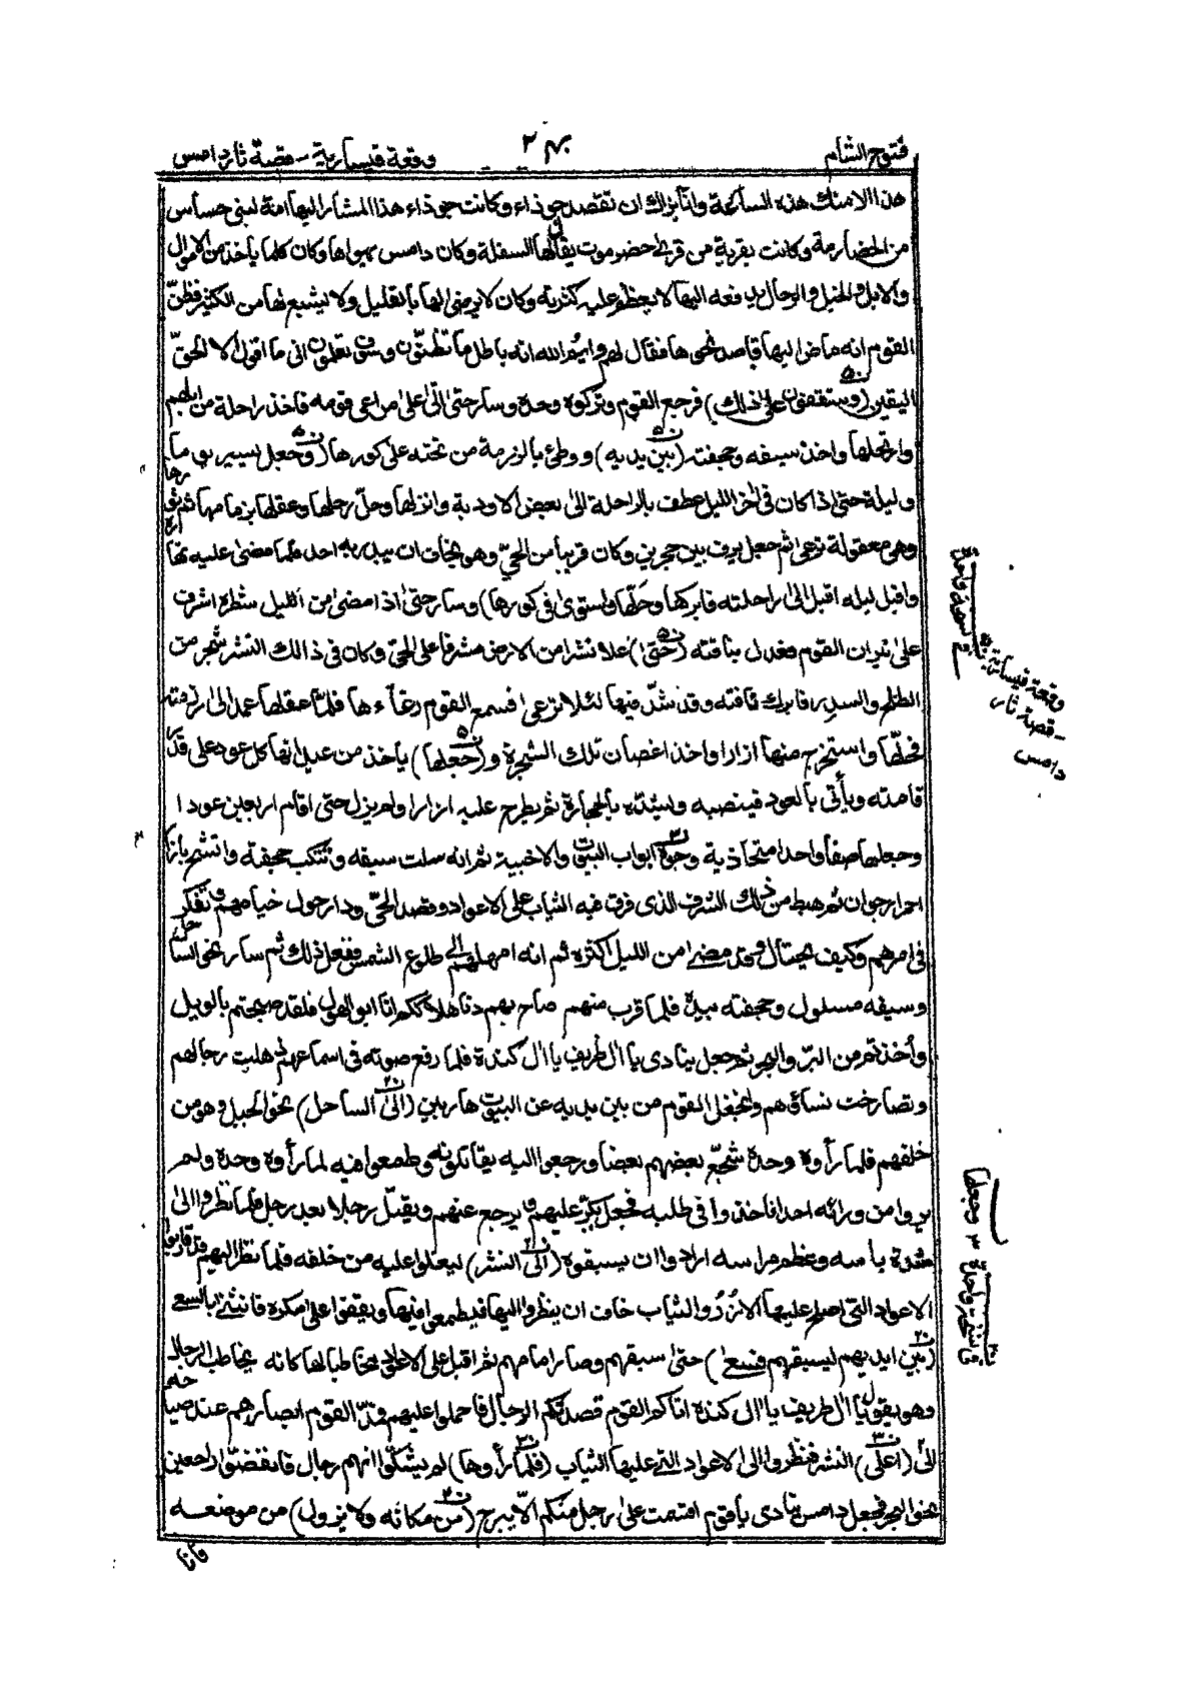 فتوح الشام
٢٠٤
وقعة قيسارية - قصة ثار دامس
هذا الا منك هذه السائمة وانا نراك ان تقصد جوذاء وكانت جوذاء هذا المشار اليها امة لبنى حساس
من الحضارمة وكانت بقرية من قرى حضرموت يقال لها السفلة وكان دامس يهواها وكان كلما ياخذ من الاموال
والابل والخيل والرحال يدفعه اليها لا يعظم عليه كثرته وكان لا يرضى لها بالقليل ولا يشبع لها من الكثير فظنّ
القوم انه ماض اليها قاصد نحوها فقال لهم وايم الله انه باطل ما تظنّون وسوف تعلمون انى ما اقول الا الحقّ
اليقين (وستقفون على ذلك) فرجع القوم وتركوه وحده وسار حتى اتى على مراعى قومه فاخذ راحلة من ابلهم
وارتحلها واخذ سيفه وحجفته (بين يديه) ووطئ بالرزمة من تحته على كورها (وجعل يسير يومها
وليلة حتى اذا كان فى اخر الليل عطف بالراحلة الى بعض الاودية وانزلها وحلّ رحلها وعقلها بزمامها ثم
وهى معقولة ترعى ثم جعل يرف بين حجرين وكان قريبا من الحىّ وهو يخاف ان يبدر به احد فلما مضى عليه نهاره
واقبل ليله اقبل الى راحلته فابركها وحلّها واستوى فى كورها) وسار حتى اذا مضى من الليل شطره اشرف
على نيران القوم فعدل بناقته (حتى) علا نشزا من الارض مشرفا على الحىّ وكان فى ذالك النشز شجر من
الطلح والسدر فابرك ناقته وقد شدّ فيها لئلا ترعى فسمع القوم رغاءها فلمّا عقلها عمد الى رزمته
فحلّها واستخرج منها ازارا واخذ اغصان تلك الشجرة و(جعلها) ياخذ من عيدانها كل عود على قدر
قامته وياتى بالعود فينصبه ويسنّده بالحجارة ثم يطرح عليه ازارا ولم يزل حتى اقام اربعين عودا
وجعلها صفا واحدا متحاذية وجوه ابواب البيت والاخبية ثم انه سلت سيفه وتنكب حجفته واتشح بازار
احمر ارجوان ثم هبط من ذلك الشرف الذى فرق فيه الثياب على الاعواد وقصد الحىّ ودار حول خيامهم وتفكر
فى امرهم وكيف يحتال وقد مضى من الليل اكثره ثم انه امهلهم الى طلوع الشمس ففعل ذلك ثم سار نحو الساحل
وسيفه مسلول وحجفته بيده فلما قرب منهم صاح بهم دنا هلاككم انا ابو الهول فلقد صبحتم بالويل
وأخذتم من البرّ والبحر ثم جعل ينادى يا ال طريف يا ال كندة فلما رفع صوته فى اسماعهم ذهلت رجالهم
وتصارخت نساؤهم وانجفل القوم من بين يديه عن البيت هاربين (الى الساحل) نحو الجبل وهو من
خلفهم فلما رأوه وحده شجّع بعضهم بعضا ورجعوا اليه يقاتلونه وطمعوا فيه لما رأوه وحده ولم
يروا من ورائه احدا فاخذوا فى طلبه فجعل يكرّ عليهم ويرجع عنهم ويقتل رجلا بعد رجل فلما نظروا الى
شدة باسه وعظم مراسه ارادوا ان يسبقوه (الى النشز) ليعلوا عليه من خلفه فلما نظر اليهم قد قاربوا
الاعواد التى عليها الازر والثياب خاف ان ينظروا اليها فيطمعوا فيها ويقفوا على مكره فانثنى بالسعى
(بين ايديهم ليسبقهم فسعى) حتى سبقهم وصار امامهم ثم اقبل على الاعواد مخاطبا لها كانه يخاطب الرجال
وهو يقول يا ال طريف يا ال كندة اتاكم القوم قصدتكم الرجال فاحملوا عليهم فمدّ القوم ابصارهم عند صياحه
الى (اعلى) النشز فنظروا الى الاعواد التى عليها الثياب (فلما رأوها) لم يشكّوا انهم رجال فانقضّوا راجعين
نحو البحر فجعل دامس ينادى يا قوم اقسمت على رجل منكم الّا يبرح (من مكانه ولا يزول) من موضعه
وقعة قيسارية
- قصة ثار
دامس